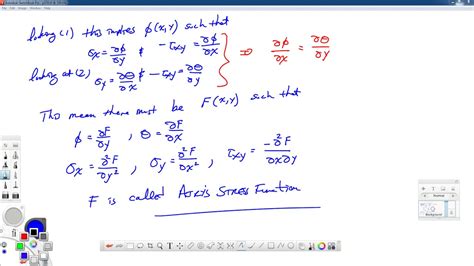 looking (1) this implies φ(x,y) such that
σx = ∂φ/∂y & -τxy = ∂φ/∂x
looking at (2) σy = ∂θ/∂x & -τxy = ∂θ/∂y
⇒ ∂φ/∂x = ∂θ/∂y
This mean there must be F(x,y) such that
φ = ∂F/∂y , θ = ∂F/∂x
σx = ∂²F/∂y² , σy = ∂²F/∂x² , τxy = -∂²F/∂x∂y
F is called Airy's Stress Function